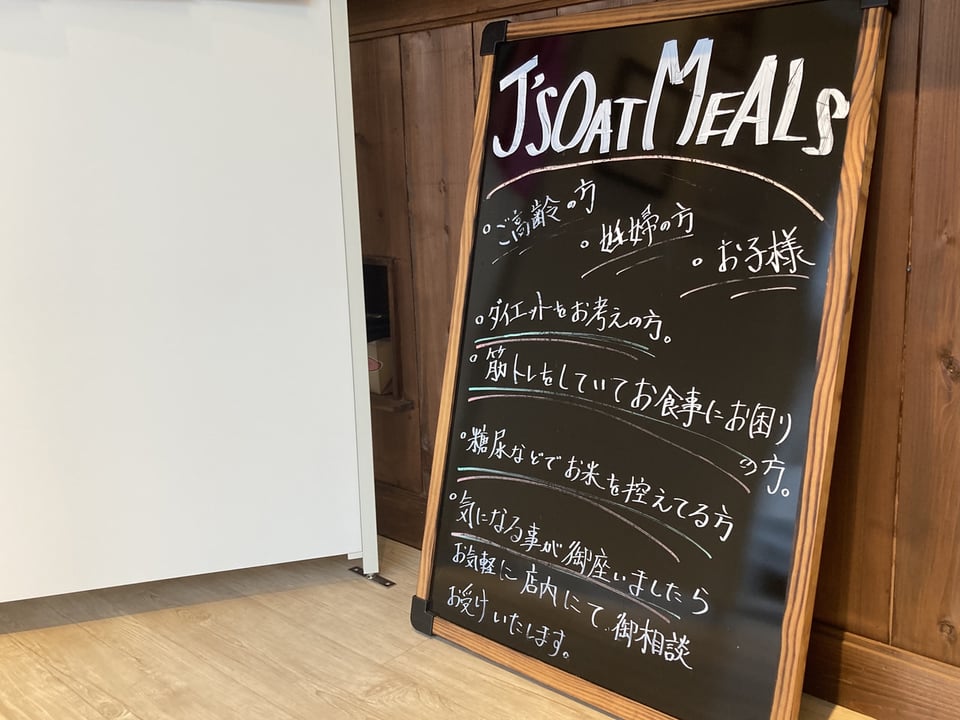 J'S OAT MEALS
。ご高齢の方
。妊婦の方
。お子様
。ダイエットをお考えの方。
。筋トレをしていてお食事にお困り
の方。
。糖尿などでお米を控えてる方
。気になる事が御座いましたら
お気軽に店内にて御相談
お受けいたします。